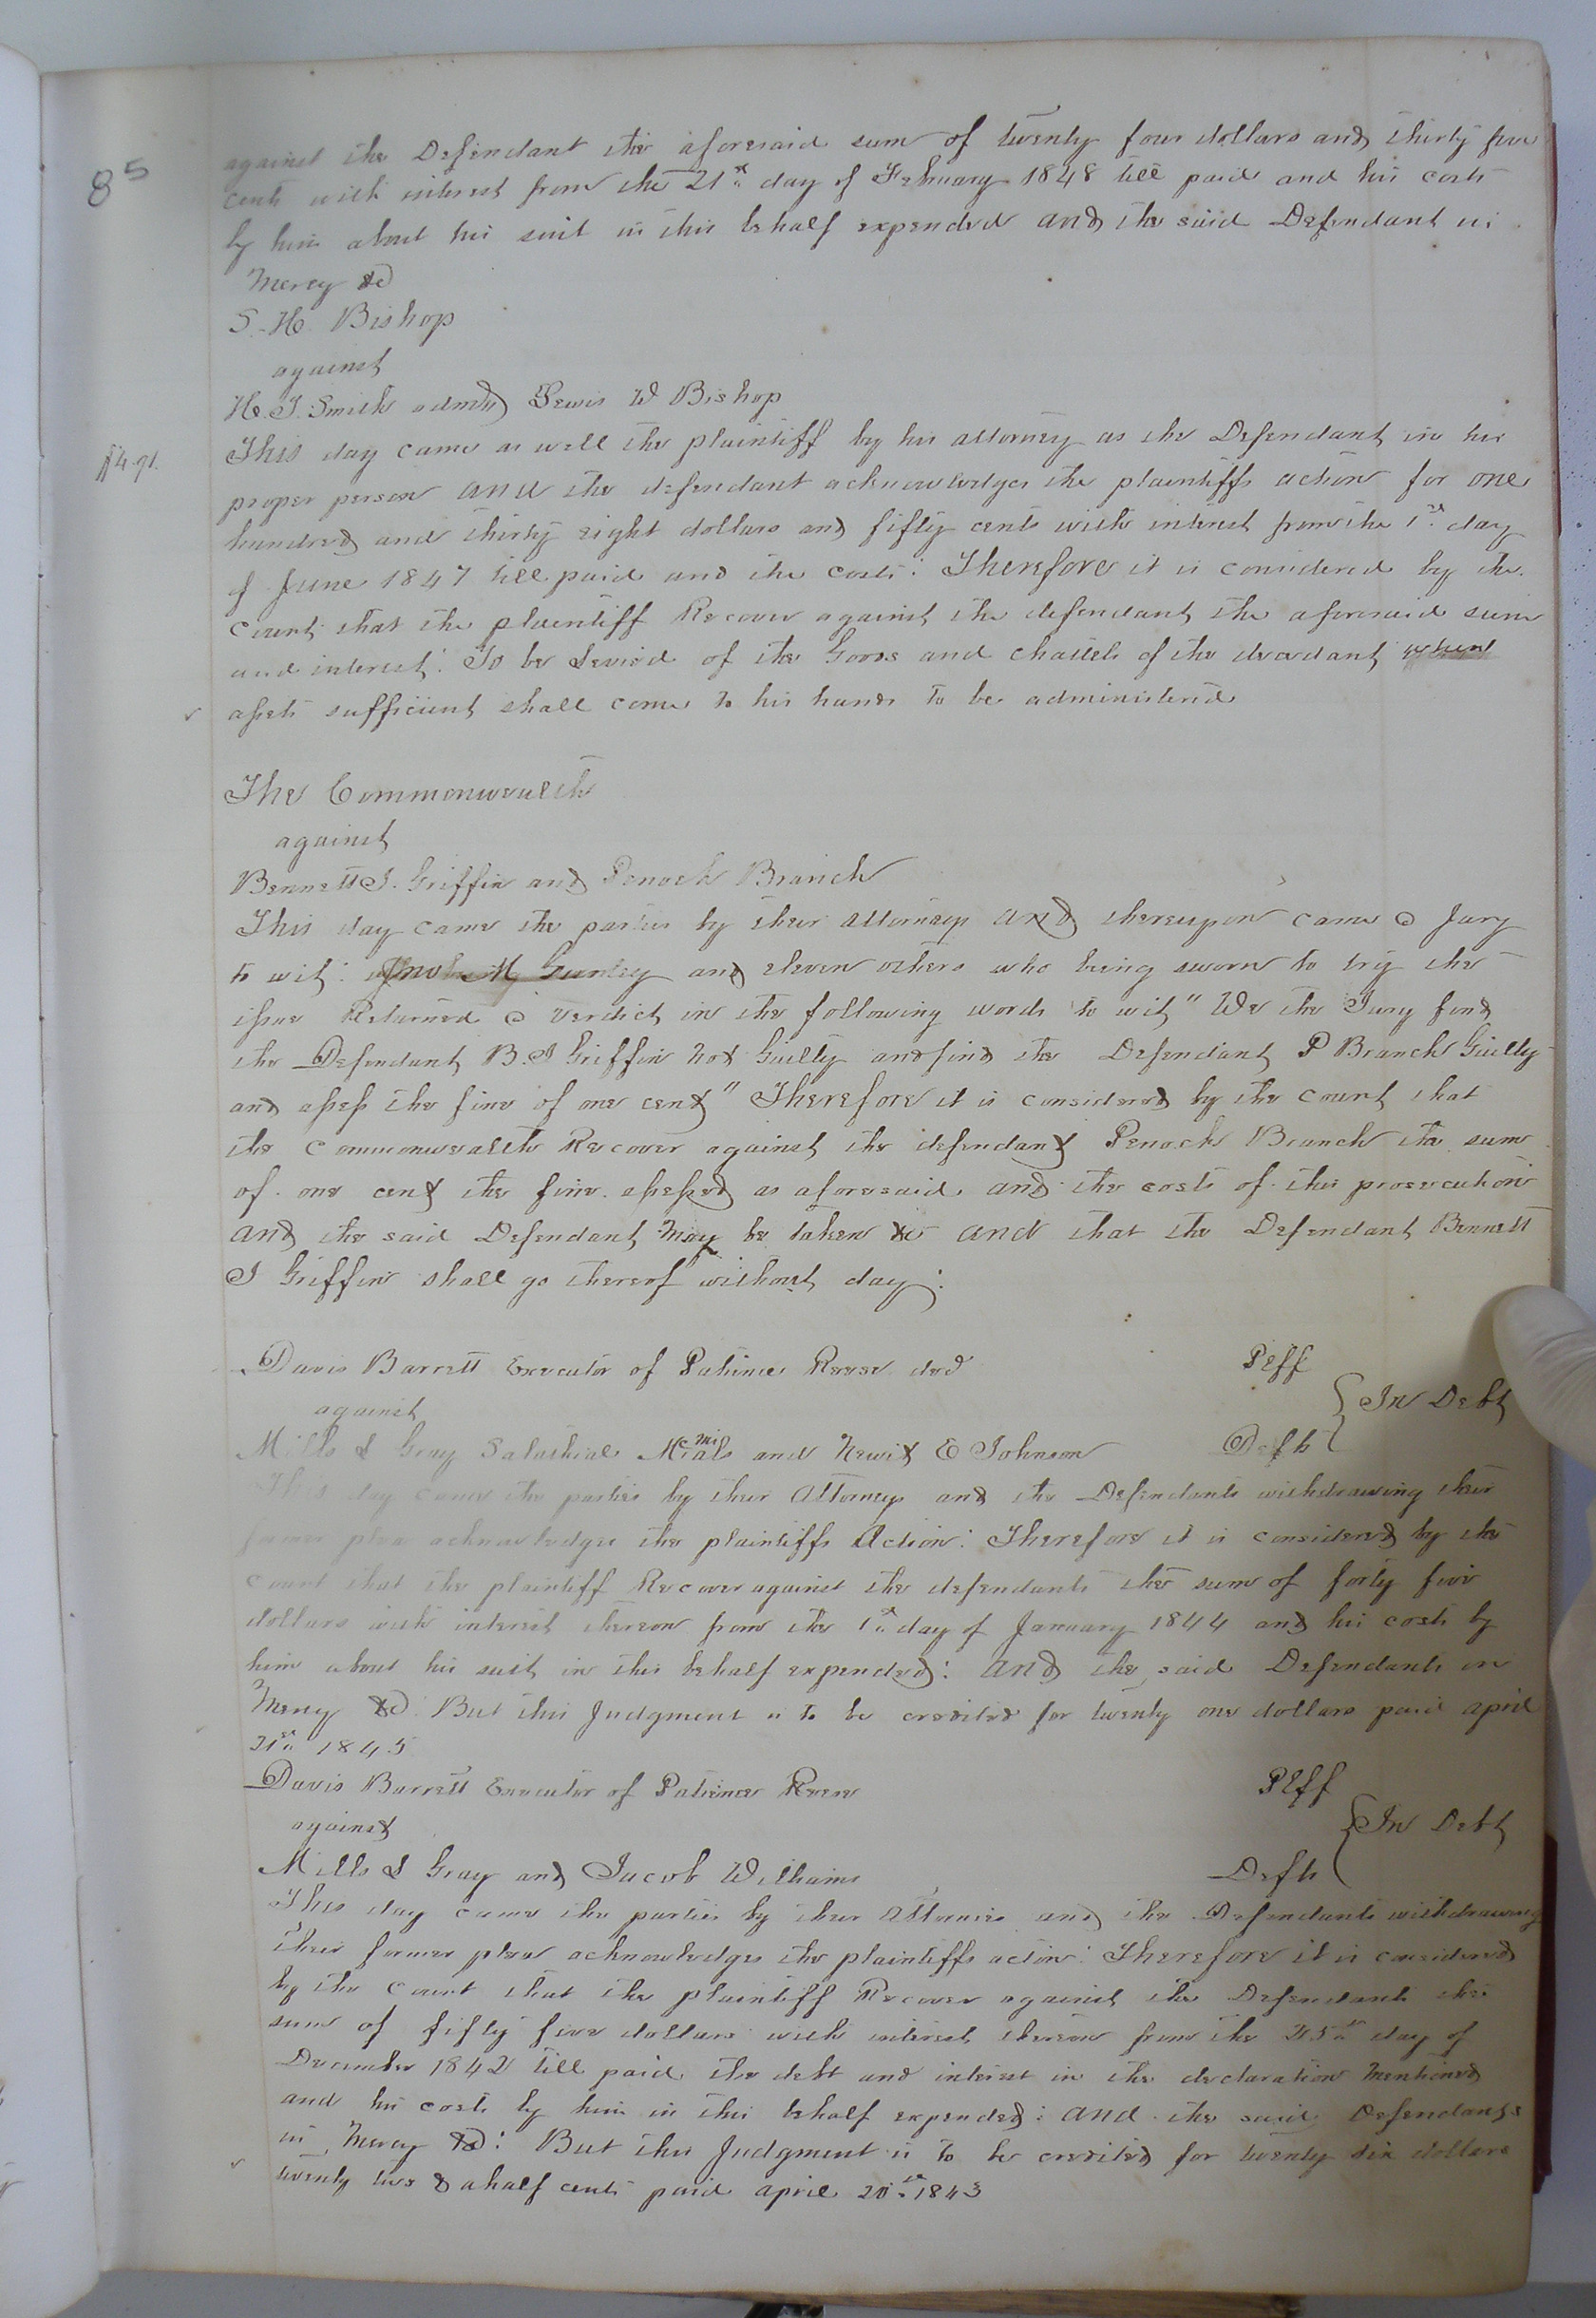 85
against the Defendant the aforesaid sum of twenty four dollars and thirty five
cents with interest from the 21st day of February 1848 till paid and his costs
by him about his suit in this behalf expended and the said Defendant in
Mercy &c
S. H. Bishop
against
H. J. Smith admr Lewis W Bishop
This day came as well the plaintiff by his attorney as the Defendant in his
$4.91.
proper person and the defendant acknowledges the plaintiffs action for one
hundred and thirty eight dollars and fifty cents with interest from the 1st day
of June 1847 till paid and the costs: Therefore it is considered by the
Court that the plaintiff Recover against the defendant the aforesaid sum
and interest: To be Levied of the Goods and chattels of the decedant when
assets sufficient shall come to his hands to be administered
The Commonwealth
against
Bennett J. Griffin and Penoch Branch
This day came the parties by their attorneys and thereupon came a Jury
to wit: and eleven others who being sworn to try the
issue Returned a verdict in the following words to wit "We the Jury find
the Defendant B. J Griffin Not Guilty and find the Defendant P Branch Guilty
and assess the fine of one cent" Therefore it is considered by the court that
the commonwealth Recover against the defendant Penoch Branch the sum
of one cent the fine assessed as aforesaid and the costs of this prosecution
and the said Defendant may be taken &c and that the Defendant Bennett
J Griffin shall go thereof without day:
Davis Barrett Executor of Patience Reese decd Plff
against In Debt
Mills L Gray Salathial and Newit E Johnson Defts
This day came the parties by their Attorneys and the Defendants withdrawing their
former plea acknowledges the plaintiffs Action: Therefore it is considered by the
court that the plaintiff Recover against the defendants the sum of forty five
dollars with interest thereon from the 1st day of January 1844 and his costs by
him about his suit in this behalf expended: and the said Defendants in
Mercy &c: But this Judgment is to be credited for twenty one dollars paid april
21st 1845
Davis Barrett Executor of Patience Reese Plff
against In Debt
Mills L Gray and Jacob Williams Defts
This day came the parties by their Attornies and the Defendants withdrawing
their former plea acknowledges the plaintiffs action: Therefore it is considered
by the Court that the plaintiff Recover against the Defendants the
sum of fifty five dollars with interest thereon from the 25th day of
December 1842 till paid the debt and interest in the declaration mentioned
and his costs by him in this behalf expended: and the said Defendants
in Mercy &c: But this Judgment is to be credited for twenty six dollars
twenty two & a half cents paid april 20th 1843